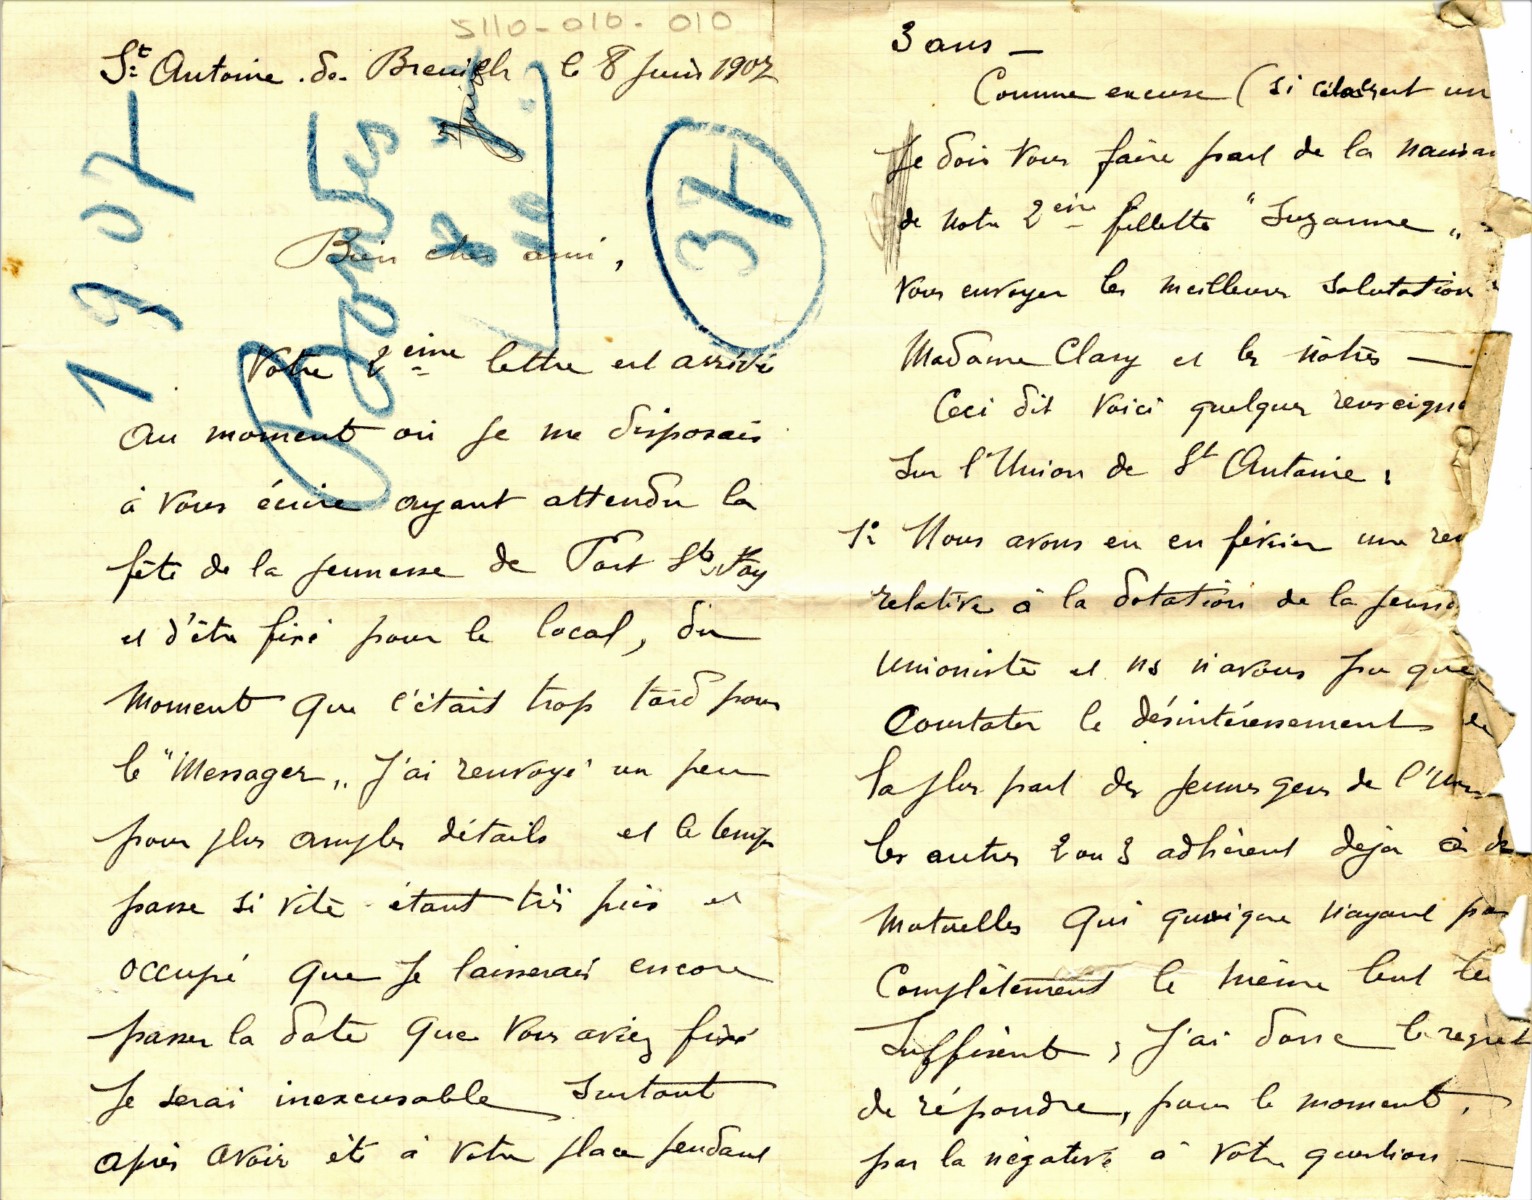 5110-010-010
St Antoine de Breuilh le 8 Juin 1907
1907
37
Bien cher ami,
Votre 2ème lettre est arrivée
au moment où je me disposais
à vous écrire ayant attendu la
fête de la jeunesse de Port Ste Foy
et d'être fixé pour le local, du
moment que c'était trop tard pour
le "Messager" j'ai renvoyé un peu
pour plus amples détails et le temps
passe si vite étant très pris et
occupé que je laisserais encore
passer la date que vous aviez fixé
Je serai inexcusable surtout
après avoir été à votre place pendant
3 ans —
Comme excuse (si c'en est un
Je dois vous faire part de la naissan
de notre 2ème fillette "Suzanne"
vous envoyer les meilleures salutations
Madame Clary et les nôtres —
Ceci dit voici quelques renseigne
sur l'Union de St Antoine :
1º Nous avons eu en février une reu
relative à la dotation de la jeune
unioniste et ns n'avons pu que
constater le désintéressement de
la plus part des jeunes gens de l'Union
les autres 2 ou 3 adhèrent déjà à de
mutuelles qui quoique n'ayant pas
complètement le même but le
suffisent, j'ai donc le regret
de répondre, pour le moment,
par la négative à votre question —